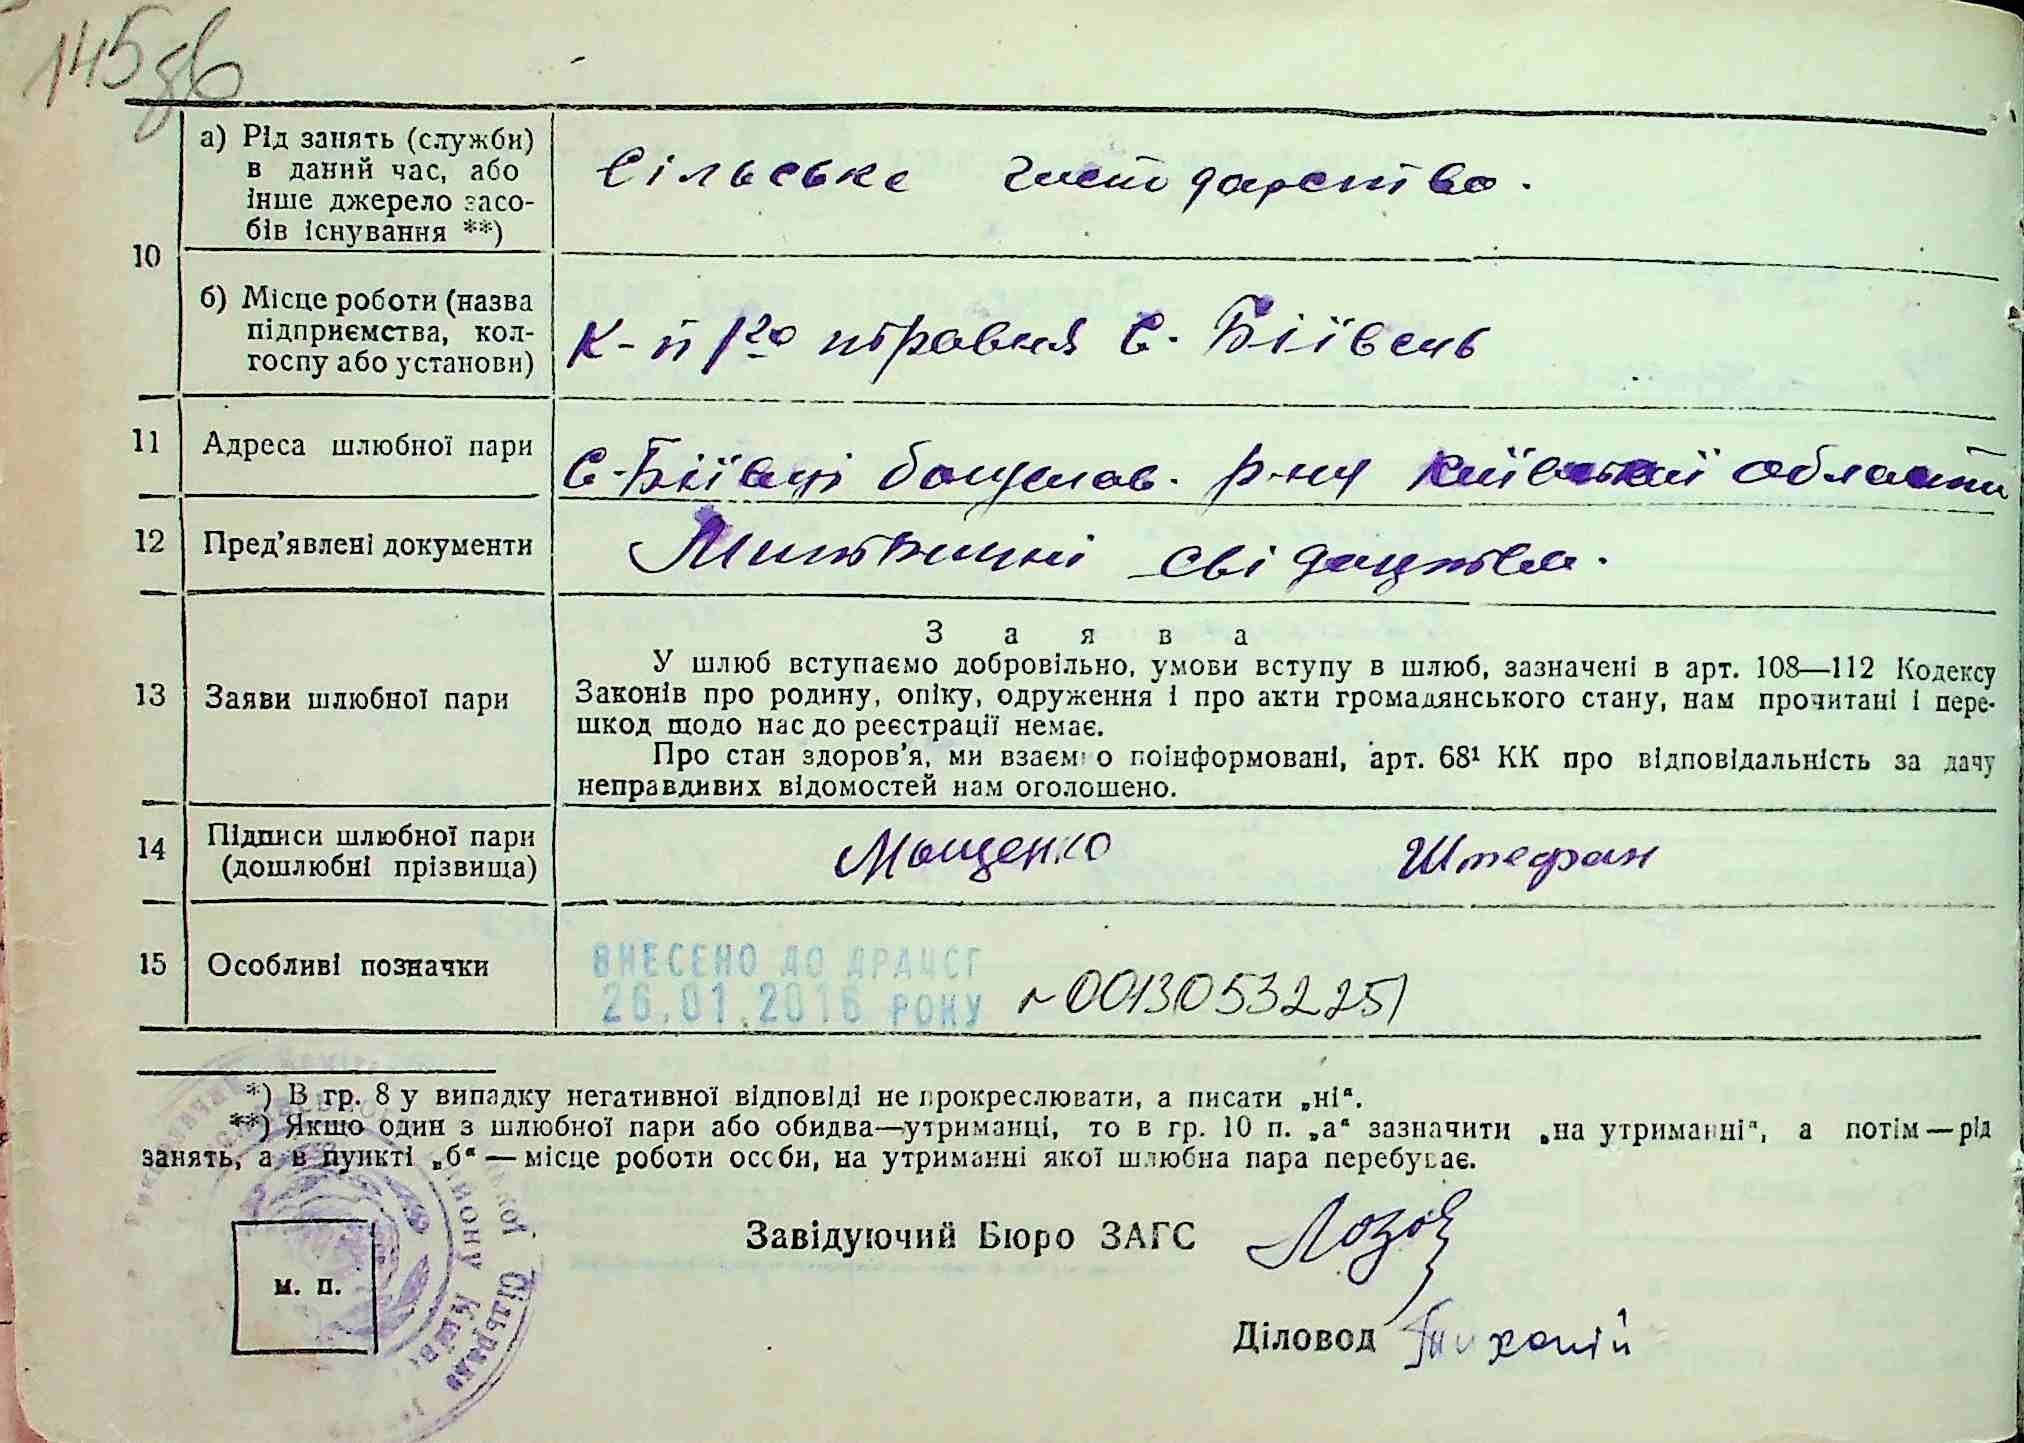 145зв
а) Рід занять (служби)
в даний час, або
інше джерело засо-
бів існування **)
Сільське господарство.
10
б) Місце роботи (назва
підприємства, кол-
госпу або установи)
с. Біївець
11
Адреса шлюбної пари
с. Біївці р-ну Київської області
12
Пред’явлені документи
свідоцтва.
З а я в а
13
Заяви шлюбної пари
У шлюб вступаємо добровільно, умови вступу в шлюб, зазначені в арт. 108—112 Кодексу
Законів про родину, опіку, одруження і про акти громадянського стану, нам прочитані і пере-
шкод щодо нас до реєстрації немає.
Про стан здоров’я, ми взаємно поінформовані, арт. 68¹ КК про відповідальність за дачу
неправдивих відомостей нам оголошено.
14
Підписи шлюбної пари
(дошлюбні прізвища)
Мощенко Штефан
15
Особливі позначки
ВНЕСЕНО ДО ДРАЦСГ
26.01.2016 РОКУ
00130532251
*) В гр. 8 у випадку негативної відповіді не прокреслювати, а писати „ні“.
**) Якщо один з шлюбної пари або обидва—утриманці, то в гр. 10 п. „а“ зазначити „на утриманні“, а потім — рід
занять, а в пункті „б“ — місце роботи особи, на утриманні якої шлюбна пара перебуває.
Завідуючий Бюро ЗАГС
м. п.
Діловод